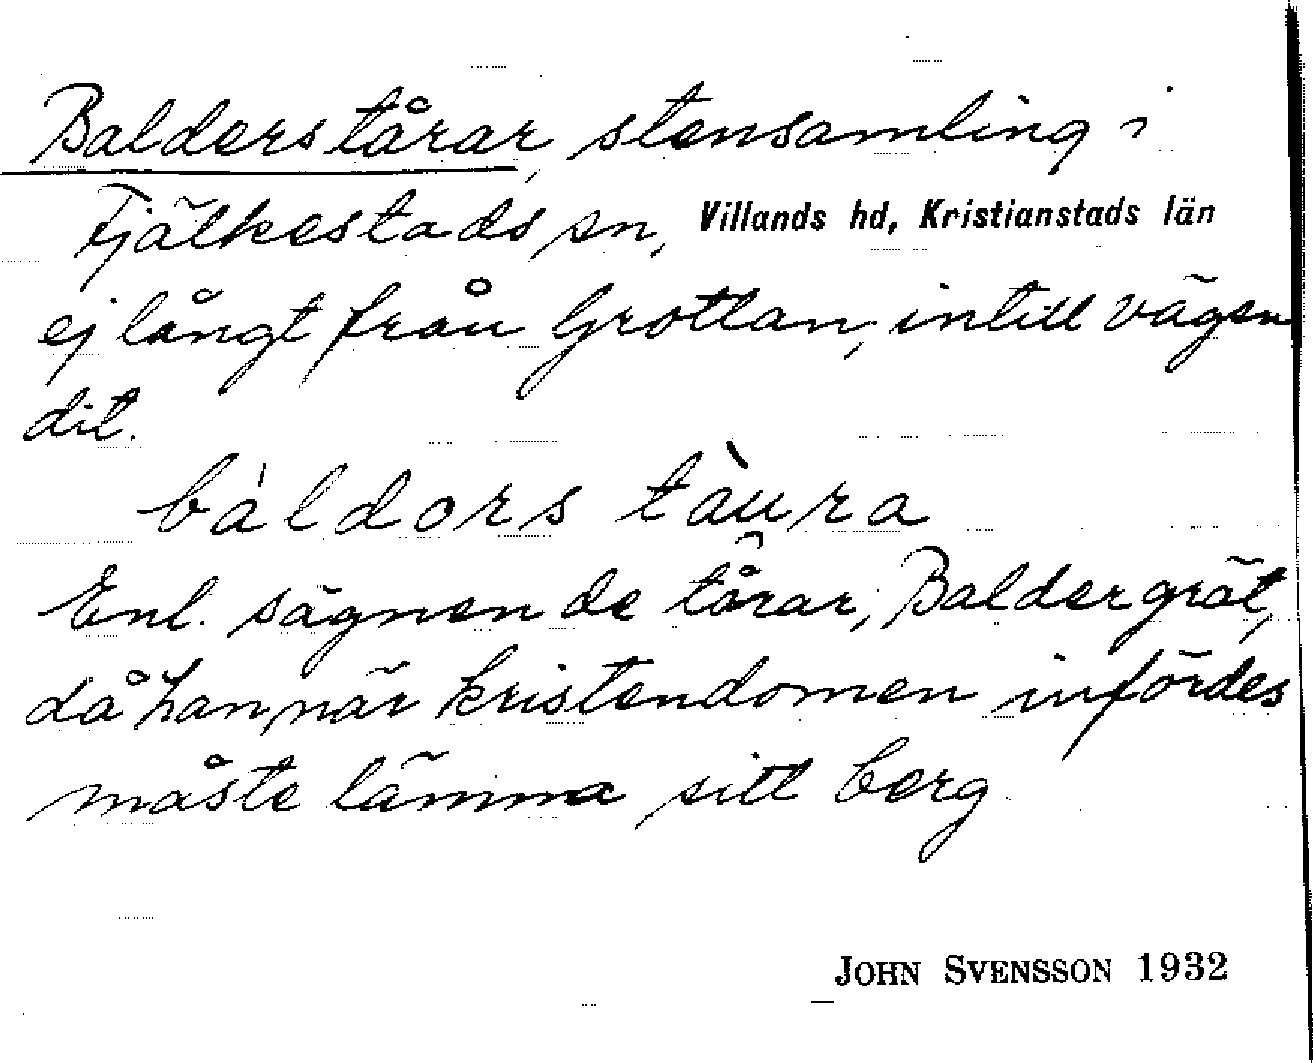 Balders tårar, stensamling i
Fjälkestads sn, Villands hd, Kristianstads län
ej långt från Grottan, intill vägen
dit.
báldors tàu̯ra
Enl. sägnen de tårar, Balder grät,
då han, när kristendomen infördes
måste lämna sitt berg.
JOHN SVENSSON 1932